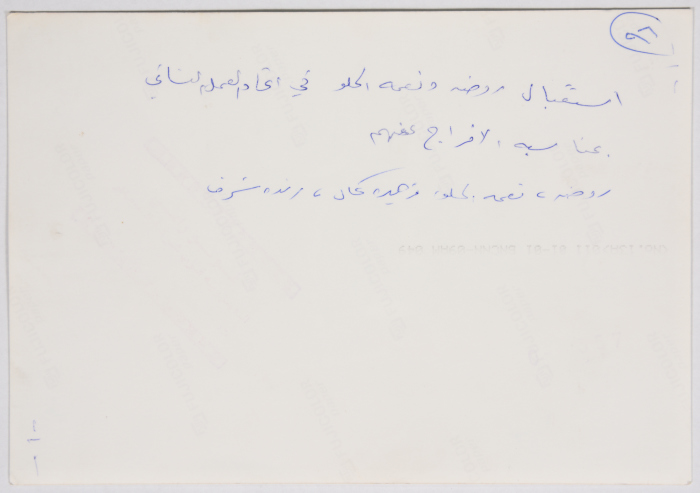 ٥٨
استقبال روضه ونعمه الحلو في اتحاد لعمل لنسائي
بمناسبه الافراج عنهم
روضه، نعمه الحلو، زهيره كمال، رنده شرف